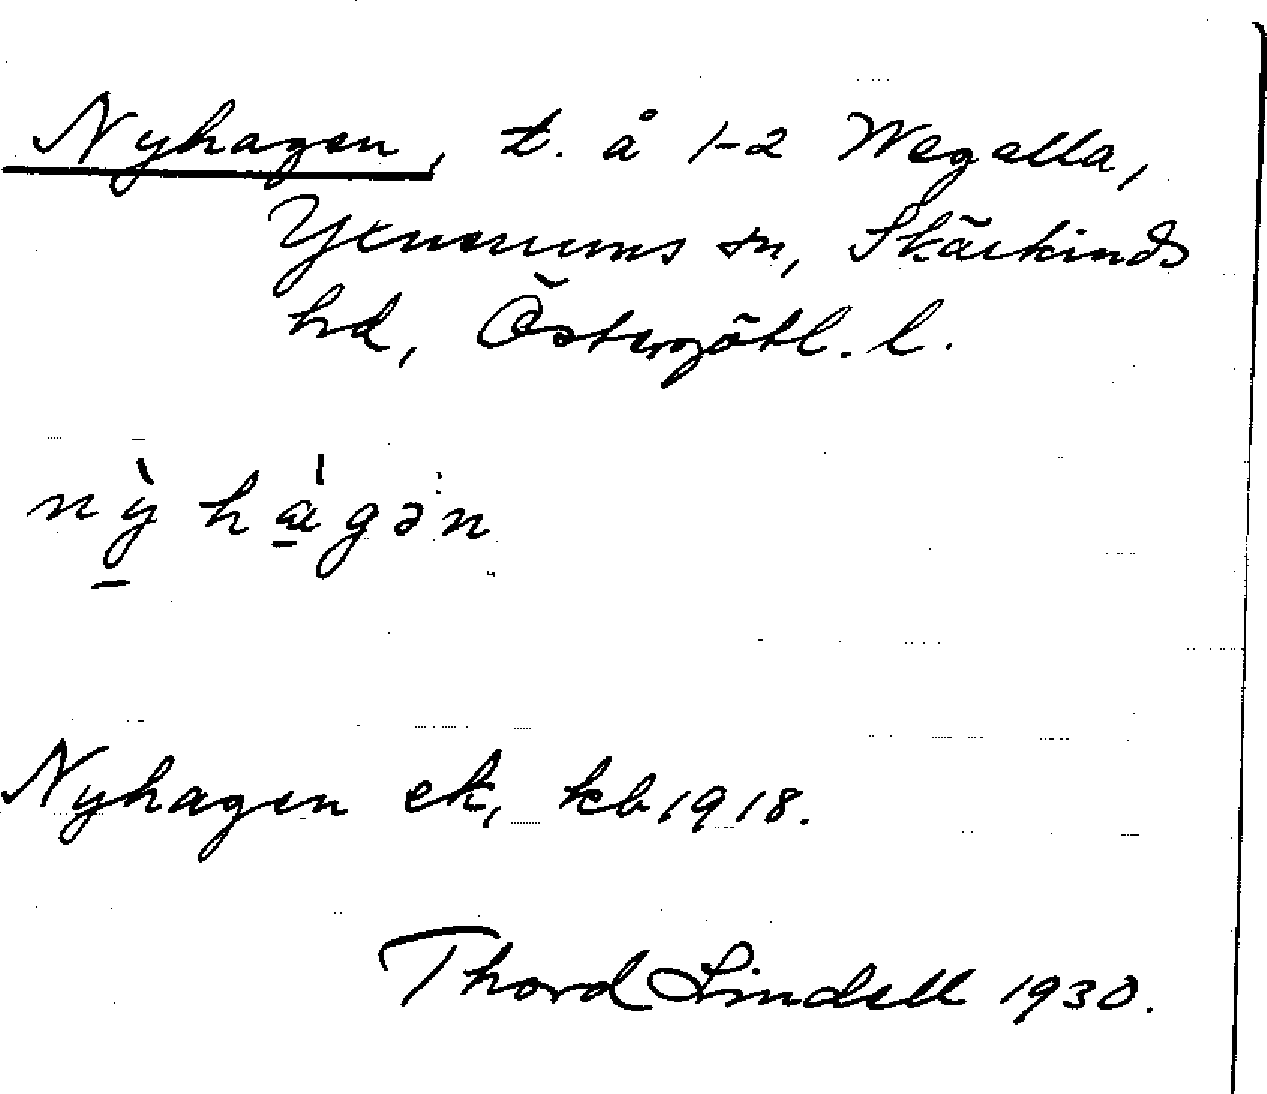 Nyhagen, t. å 1-2 Wegalla,
Yxnerums sn, Skärkinds
hd, Östergötl. l.
nỳhágən
Nyhagen ek, kb 1918.
Thord Lindell 1930.